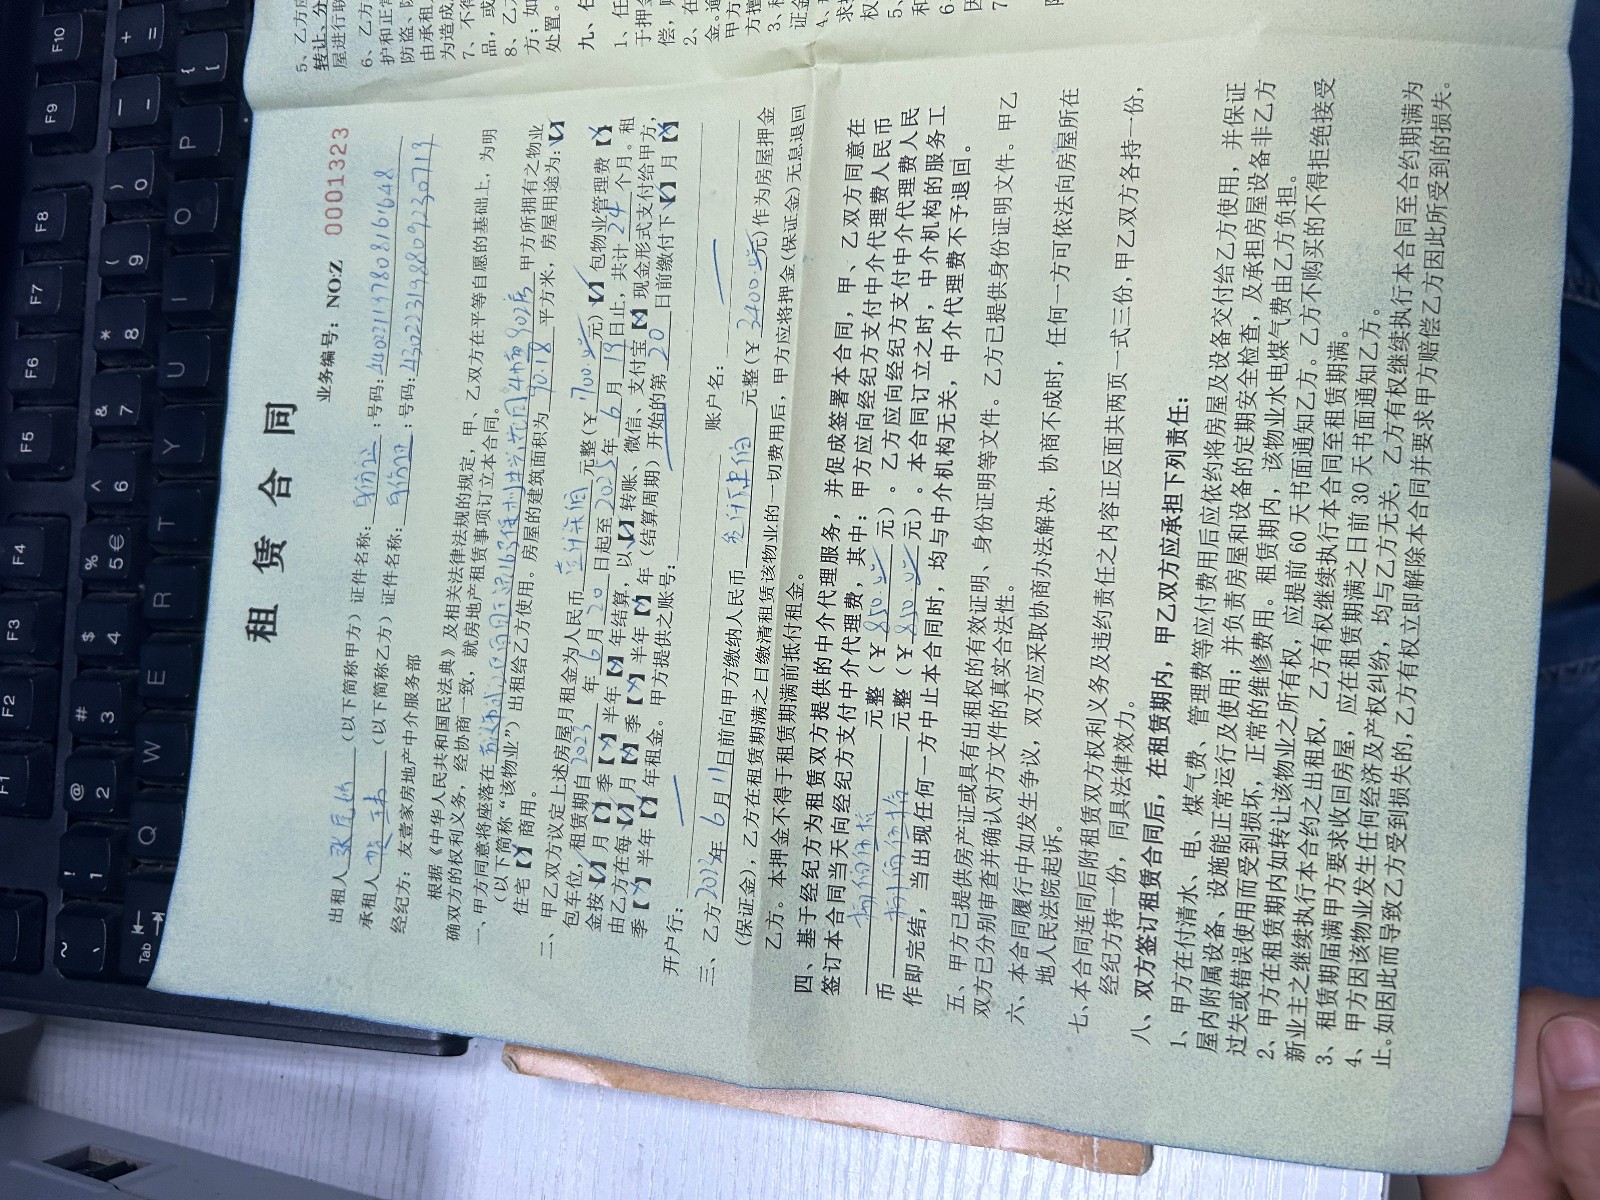 租 赁 合 同
业务编号：NO:Z 0001323
出租人（以下简称甲方）证件名称：身份证；号码：
承租人（以下简称乙方）证件名称：身份证；号码：
经纪方：友壹家房地产中介服务部
根据《中华人民共和国民法典》及相关法律法规的规定，甲、乙双方在平等自愿的基础上，为明
确双方的权利义务，经协商一致，就房地产租赁事项订立本合同。
一、甲方同意将座落在 802房 甲方所拥有之物业
（以下简称“该物业”）出租给乙方使用。房屋的建筑面积为 90.18 平方米，房屋用途为：【√】
住宅【×】商用。
二、甲乙双方议定上述房屋月租金为人民币 元整（￥1700.元）【√】包物业管理费【×】
包车位，租赁期自2023年6月20日起至2025年6月19日止，共计24个月。租
金按【√】月【×】季【×】半年【×】年结算，以【√】转账、微信、支付宝【×】现金形式支付给甲方，
由乙方在每【√】月【×】季【×】半年【×】年（结算周期）开始的第20日前缴付下【√】月【×】
季【×】半年【×】年租金。甲方提供之账号：
开户行： 账户名：
三、乙方2023年6月11日前向甲方缴纳人民币 叁仟肆佰 元整（￥3400.元）作为房屋押金
（保证金），乙方在租赁期满之日缴清租赁该物业的一切费用后，甲方应将押金（保证金）无息退回
乙方。本押金不得于租赁期满前抵付租金。
四、基于经纪方为租赁双方提供的中介代理服务，并促成签署本合同，甲、乙双方同意在
签订本合同当天向经纪方支付中介代理费，其中：甲方应向经纪方支付中介代理费人民币
捌佰伍拾 元整（￥850.元）。乙方应向经纪方支付中介代理费人民
币 捌佰伍拾 元整（￥850.元）。本合同订立之时，中介机构的服务工
作即完结，当出现任何一方中止本合同时，均与中介机构无关，中介代理费不予退回。
五、甲方已提供房产证或具有出租权的有效证明、身份证明等文件。乙方已提供身份证明文件。甲乙
双方已分别审查并确认对方文件的真实合法性。
六、本合同履行中如发生争议，双方应采取协商办法解决，协商不成时，任何一方可依法向房屋所在
地人民法院起诉。
七、本合同连同后附租赁双方权利义务及违约责任之内容正反面共两页一式三份，甲乙双方各持一份，
经纪方持一份，同具法律效力。
八、双方签订租赁合同后，在租赁期内，甲乙双方应承担下列责任：
1、甲方在付清水、电、煤气费、管理费等应付费用后应依约将房屋及设备交付给乙方使用，并保证
屋内附属设备、设施能正常运行及使用；并负责房屋和设备的定期安全检查，及承担房屋设备非乙方
过失或错误使用而受到损坏，正常的维修费用。租赁期内，该物业水电煤气费由乙方负担。
2、甲方在租赁期内如转让该物业之所有权，应提前 60 天书面通知乙方。乙方不购买的不得拒绝接受
新业主之继续执行本合约之出租权，乙方有权继续执行本合同至租赁期满。
3、租赁期届满甲方要求收回房屋，应在租赁期满之日前 30 天书面通知乙方。
4、甲方因该物业发生任何经济及产权纠纷，均与乙方无关，乙方有权继续执行本合同至合约期满为
止。如因此而导致乙方受到损失的，乙方有权立即解除本合同并要求甲方赔偿乙方因此所受到的损失。